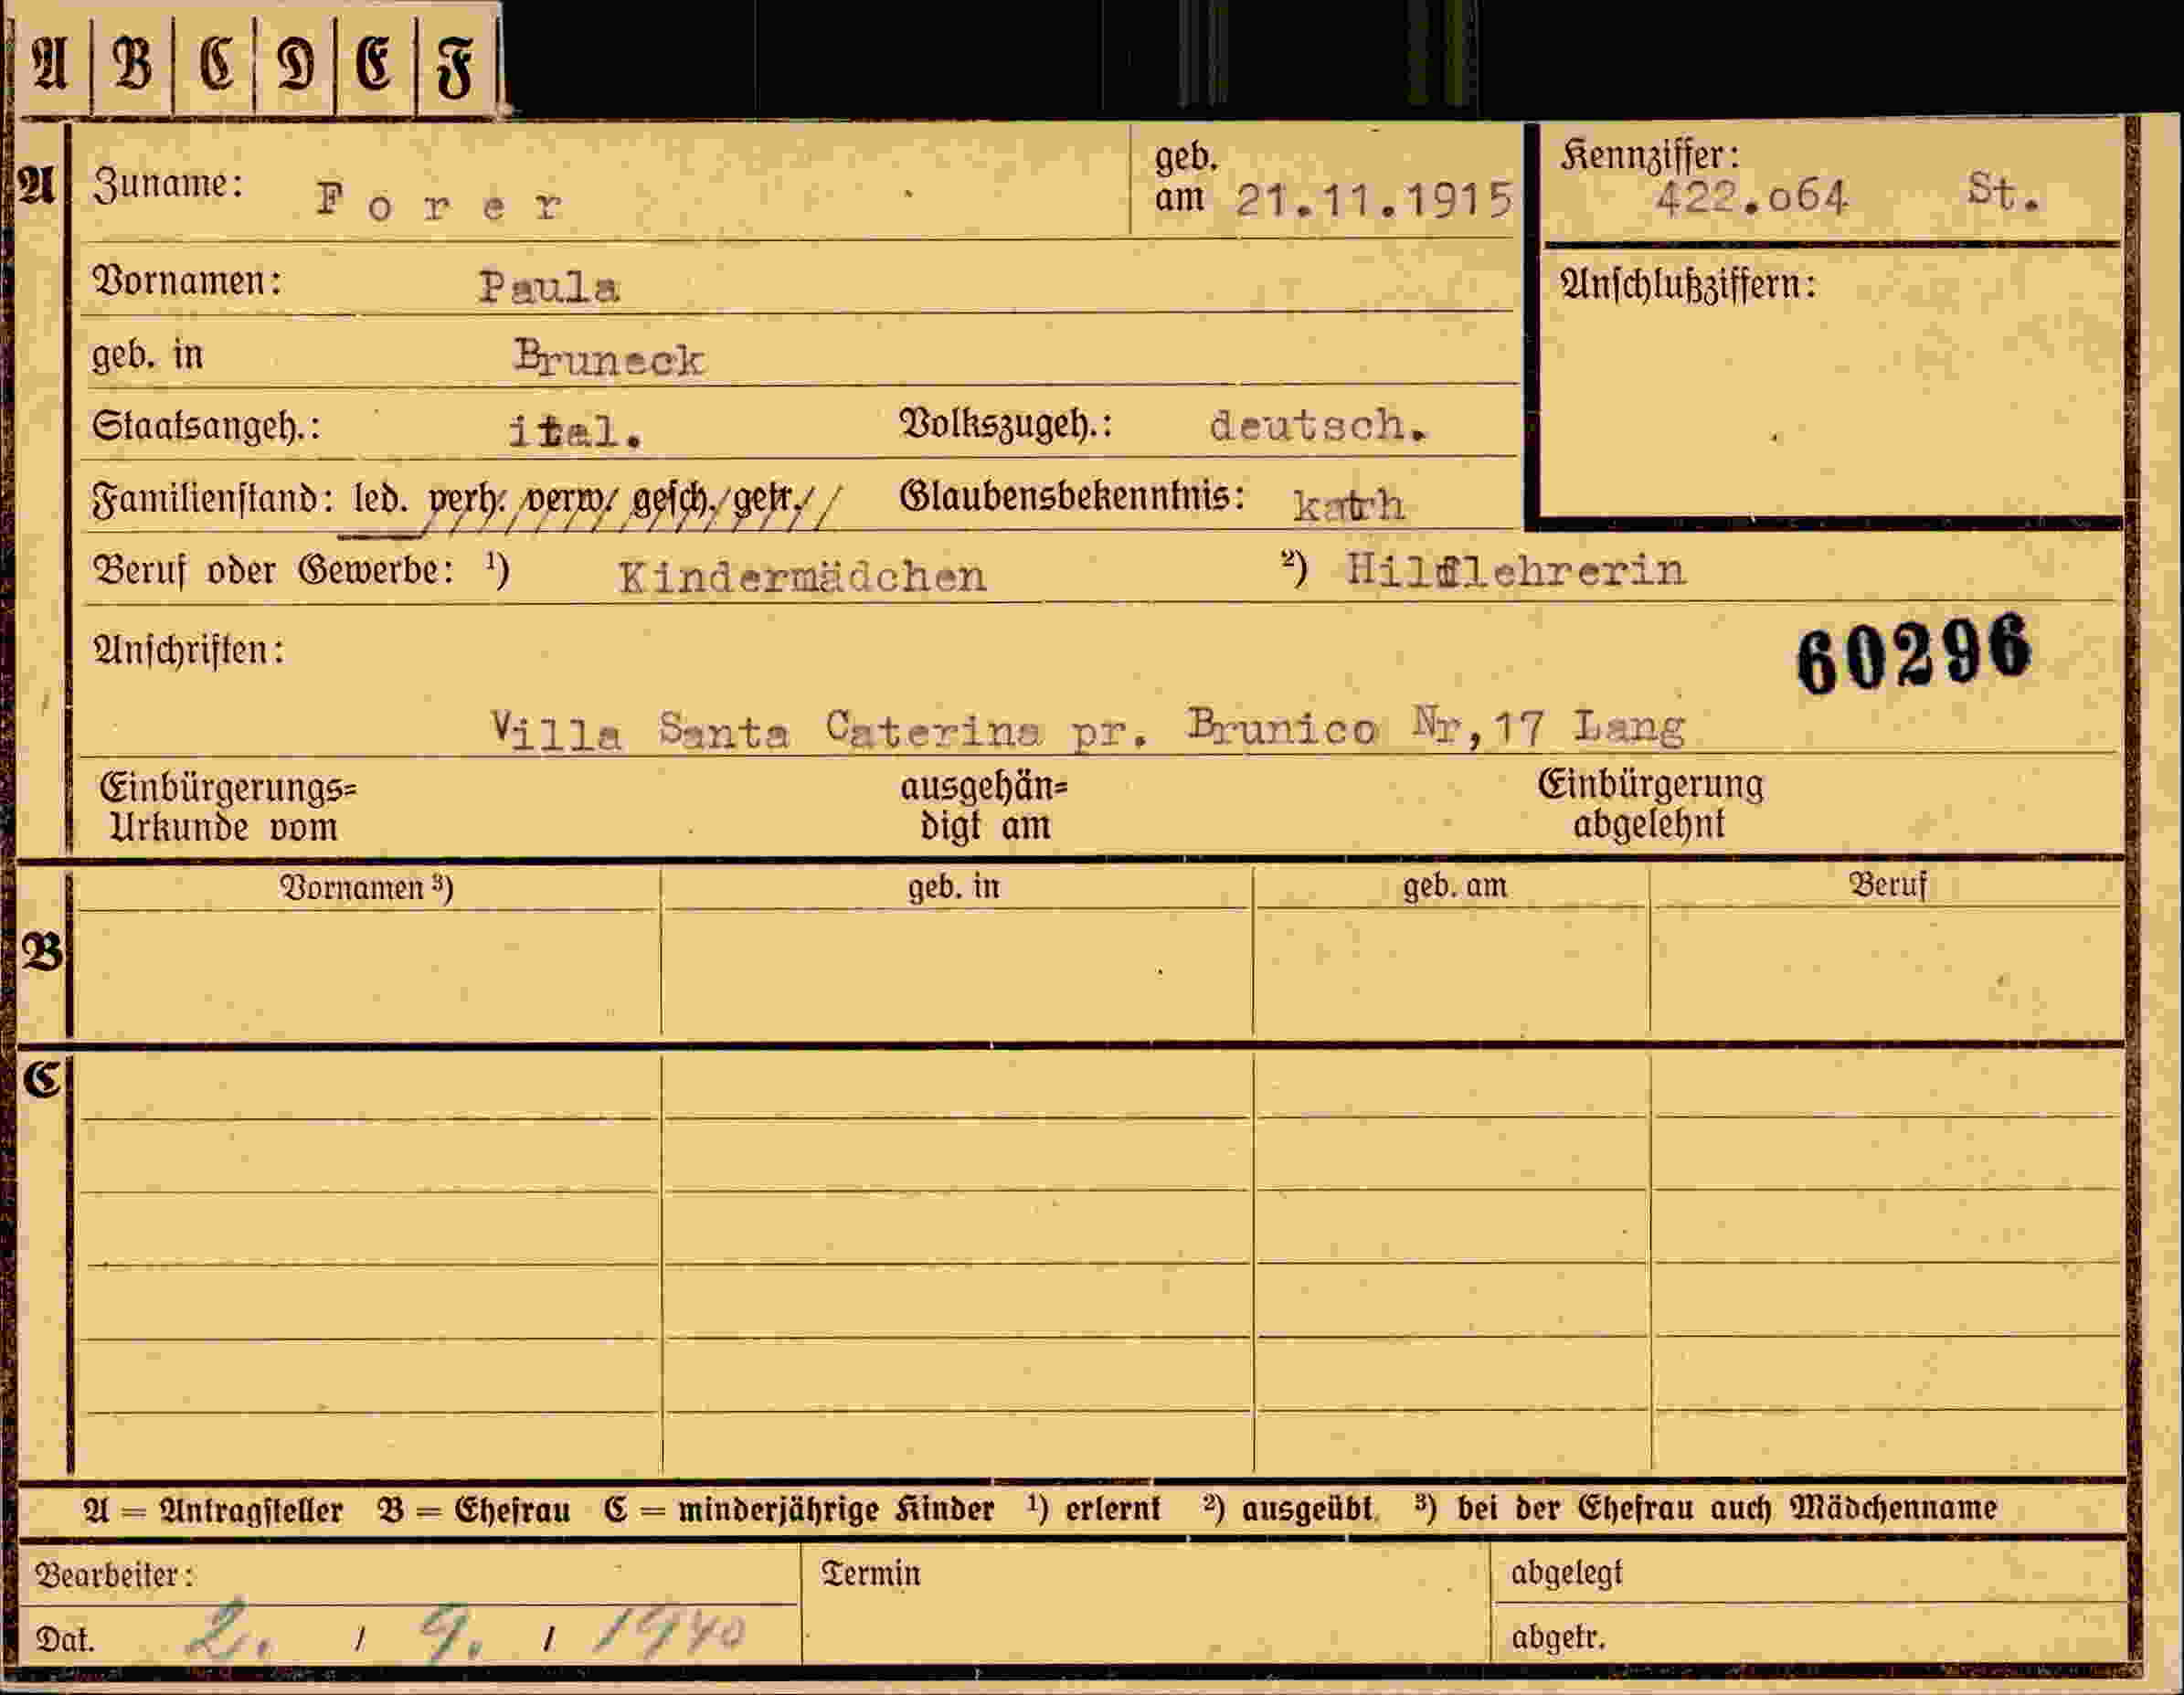 A B C D E F
A Zuname: Forer geb. am 21.11.1915 Kennziffer: 422.o64 St.
Vornamen: Paula Anschlußziffern:
geb. in Bruneck
Staatsangeh.: ital. Volkszugeh.: deutsch.
Familienstand: led. verh. verw. gesch. getr. Glaubensbekenntnis: kath
Beruf oder Gewerbe: ¹) Kindermädchen ²) Hilflehrerin
Anschriften: 60296
Villa Santa Caterina pr. Brunico Nr,17 Lang
Einbürgerungs= ausgehän= Einbürgerung
Urkunde vom digt am abgelehnt
B Vornamen ³) geb. in geb. am Beruf
C
A = Antragsteller B = Ehefrau C = minderjährige Kinder ¹) erlernt ²) ausgeübt ³) bei der Ehefrau auch Mädchenname
Bearbeiter: Termin abgelegt
Dat. 2. / 9. / 1940 abgetr.